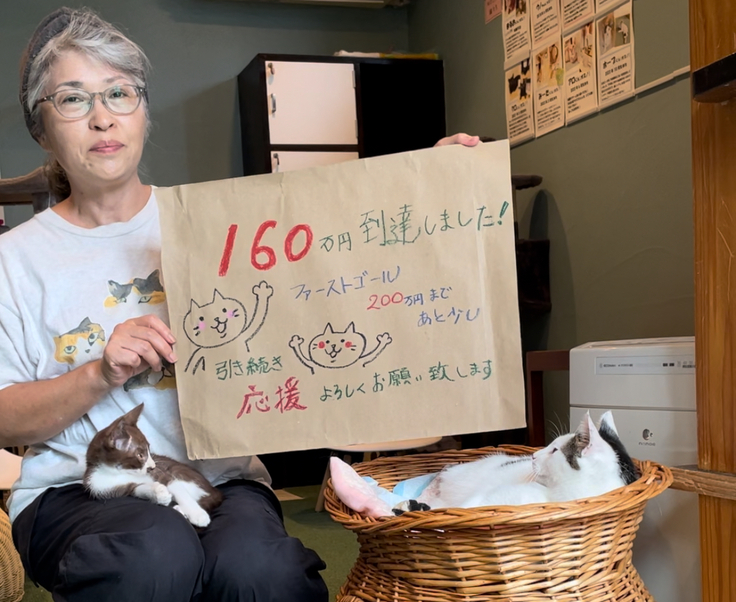 160万円到達しました!
ファーストゴール
200万円まで
あと少し
引き続き
応援よろしくお願い致します